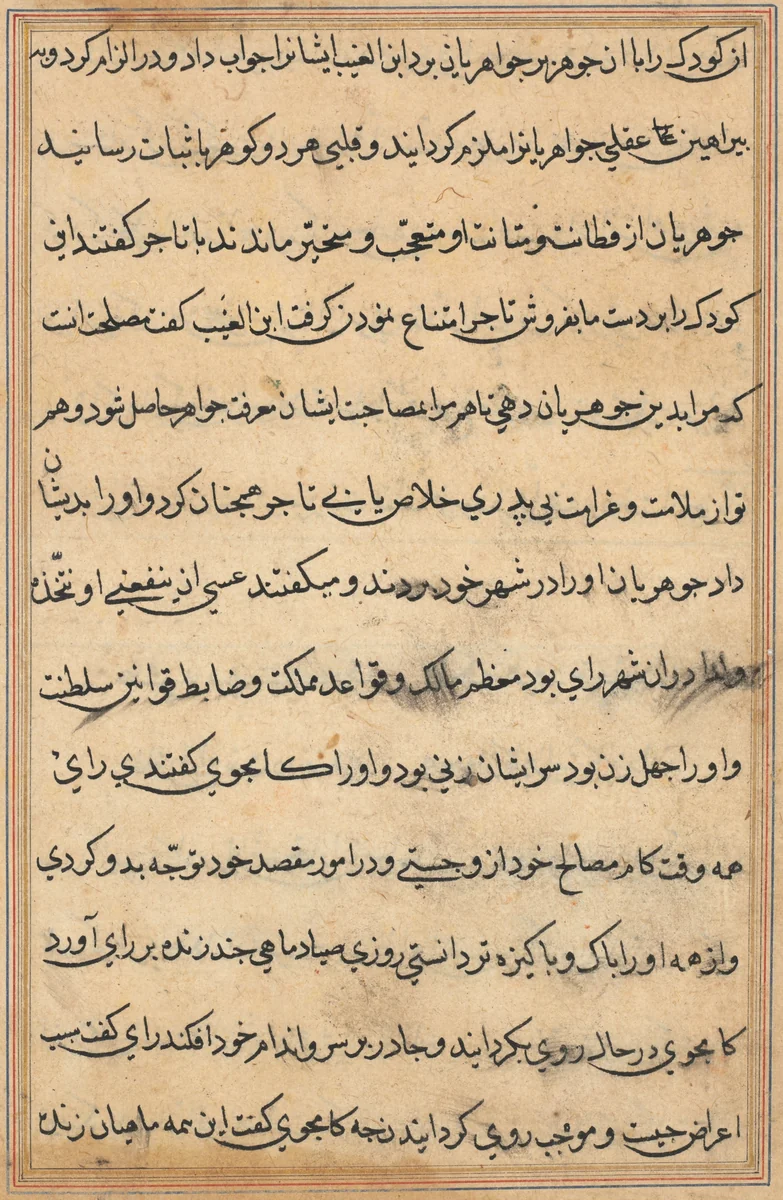 ازن کودک را با ان جوهر بر جواهریان برد ابن الغیب ایشانرا جواب داد و در الزام کرد و به
براهین عقلی جواهریانرا ملزم کردانید و قلبی هر دو کوهر باثبات رسانید
جوهریان از فطانت و متانت او متعجّب و متحیّر ماندند با تاجر کفتند این
کودک را بر دست ما بفروش تاجر امتناع نمودن کرفت ابن الغَیب کفت مصلحت انست
که مرا بدین جوهریان دهی تا هم مرا بمصاحبت ایشان معرفت جواهر حاصل شود و هم
تو از ملامت و غرامت بی پدری خلاص یابی تاجر همچنان کرد و او را بدیشان
داد جوهریان او را در شهر خود بردند و میکفتند عسی ان ینفعنی او نتّخذه
ولدا دران شهر رای بود معظم ممالک و قواعد مملکت و ضابط قوانین سلطنت
و او را جهل زن بود سر ایشان زنی بود و او را کامجوی کفتندی رای
همه وقت کام مصالح خود از و جستی و در امور مقصد خود توجّه بدو کردی
و از همه او را باک و باکیزه تر دانستی روزی صیاد ماهی جند زنده بر رای آورد
کامجوی در حال روی بکردانید و جادر بر سر و اندام خود افکند رای کفت سبب
اعراض جیست و موجب روی کردانیدن جه کامجوی کفت این همه ماهیان زنده